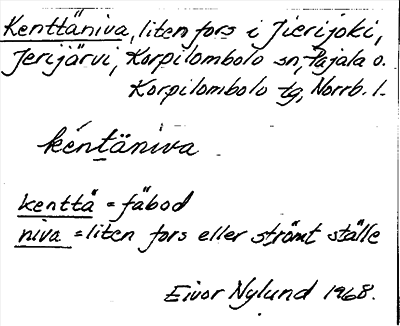 Kenttäniva, liten fors i Jierijoki,
Jerijärvi, Korpilombolo sn, Pajala o.
Korpilombolo tg, Norrb. l.
kéntäniva
kenttä = fäbod
niva = liten fors eller strömt ställe
Eivor Nylund 1968.